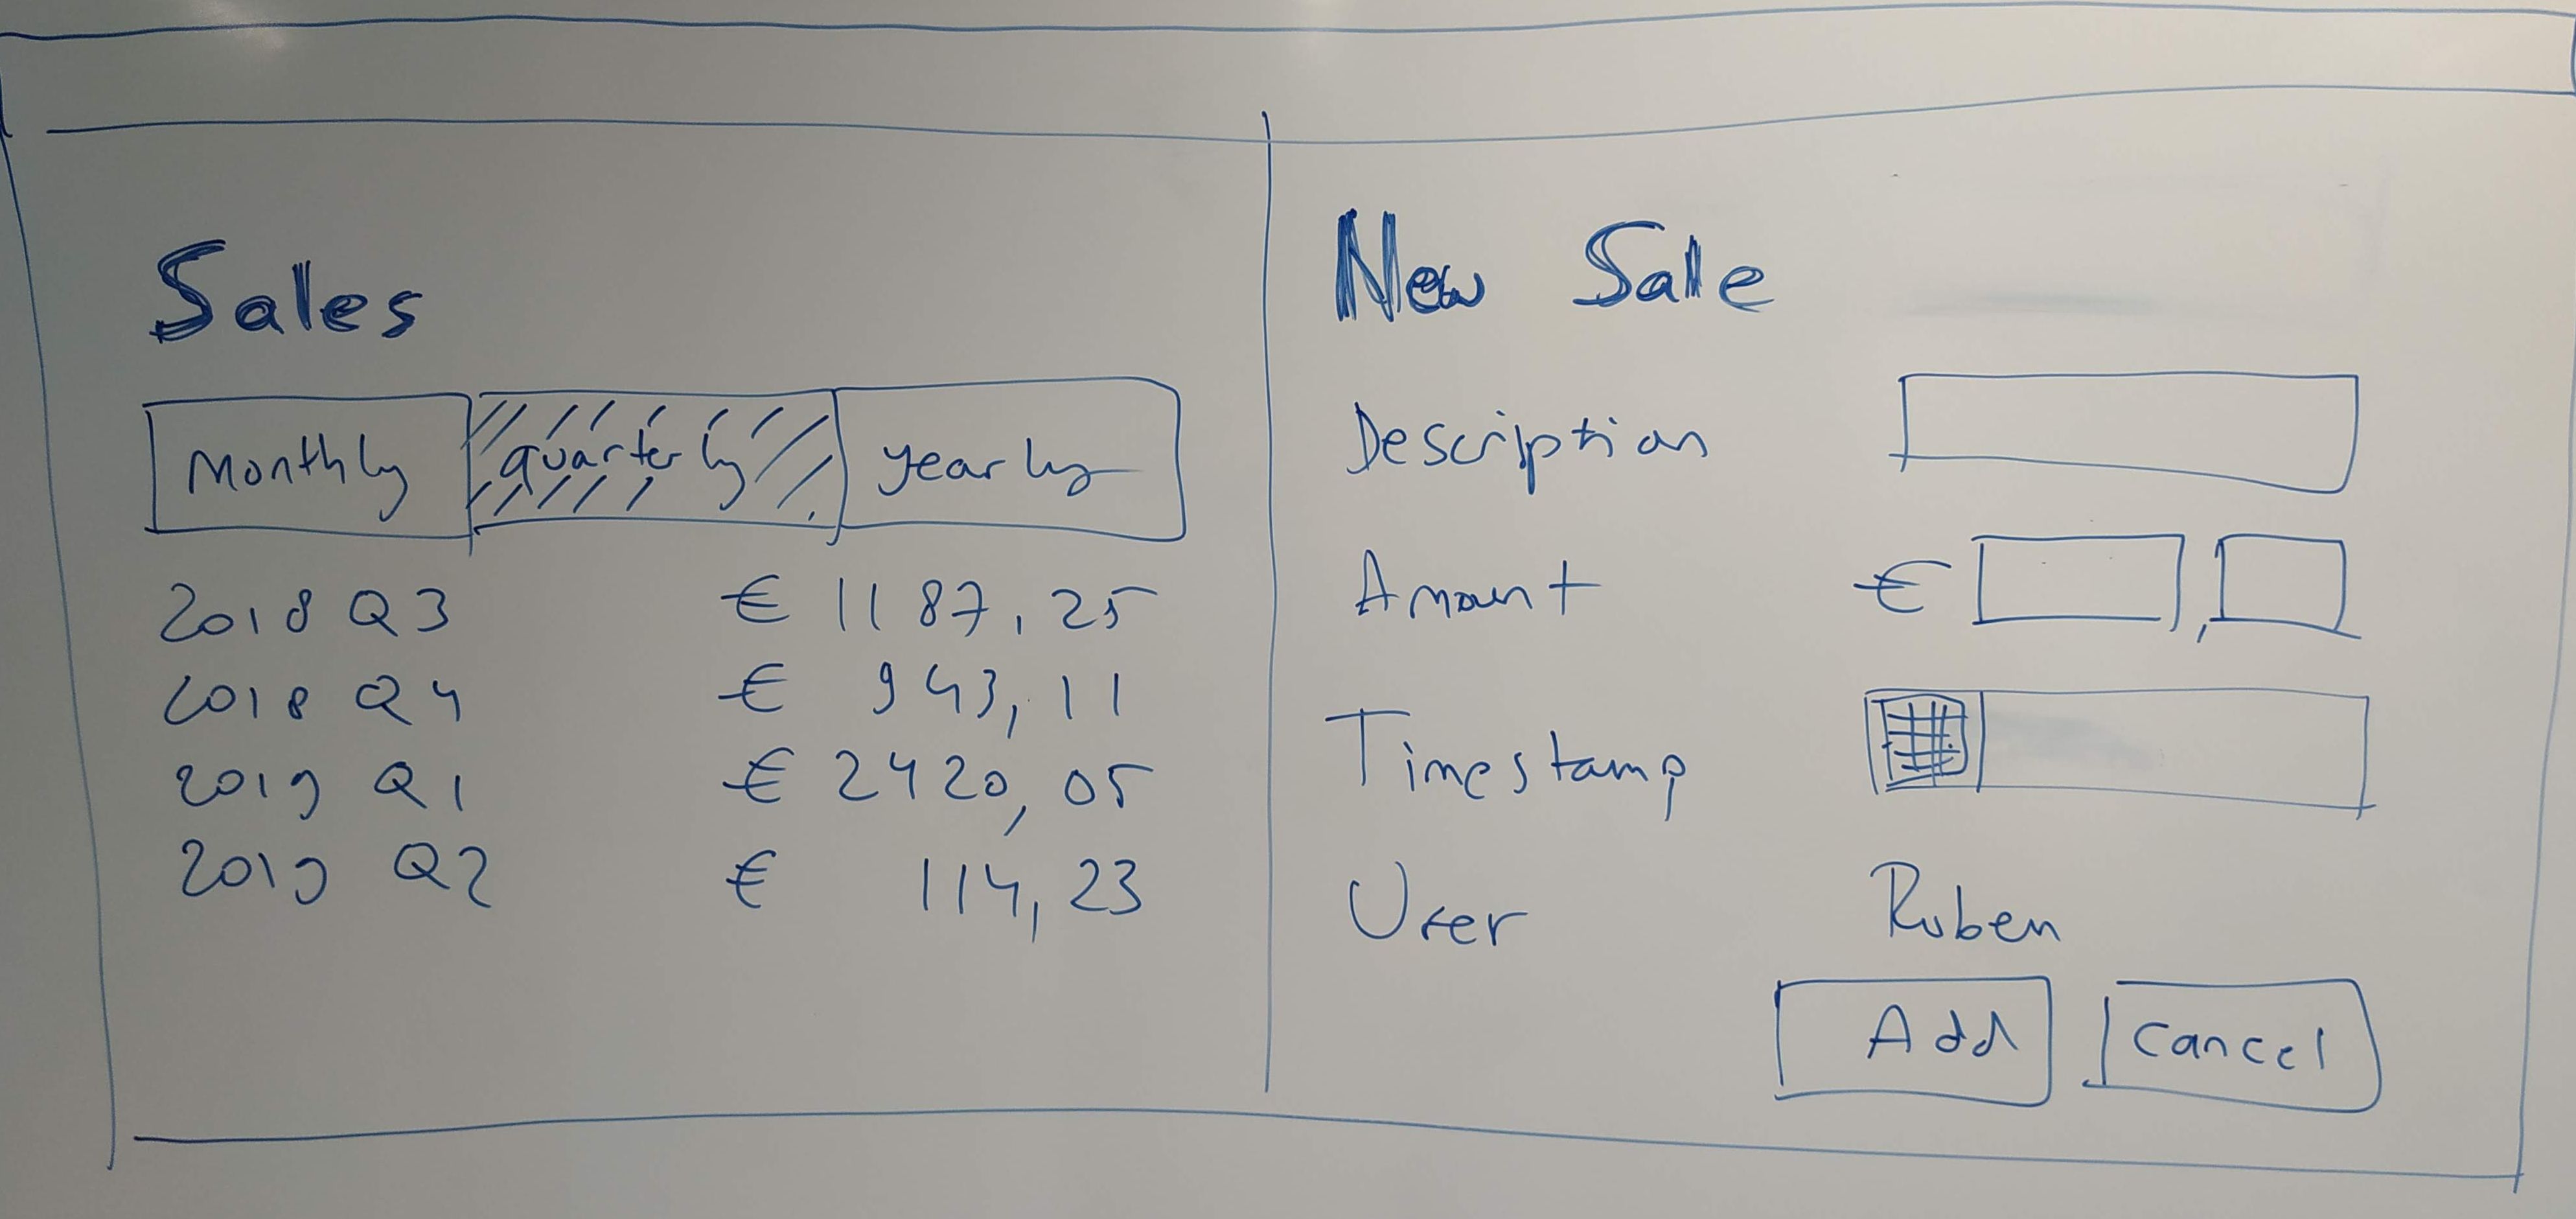 Sales
Monthly quarterly yearly
2018 Q3 € 1187,25
2018 Q4 € 943,11
2019 Q1 € 2420,05
2019 Q2 € 114,23
New Sale
Description
Amount € ,
Timestamp
User Ruben
Add Cancel